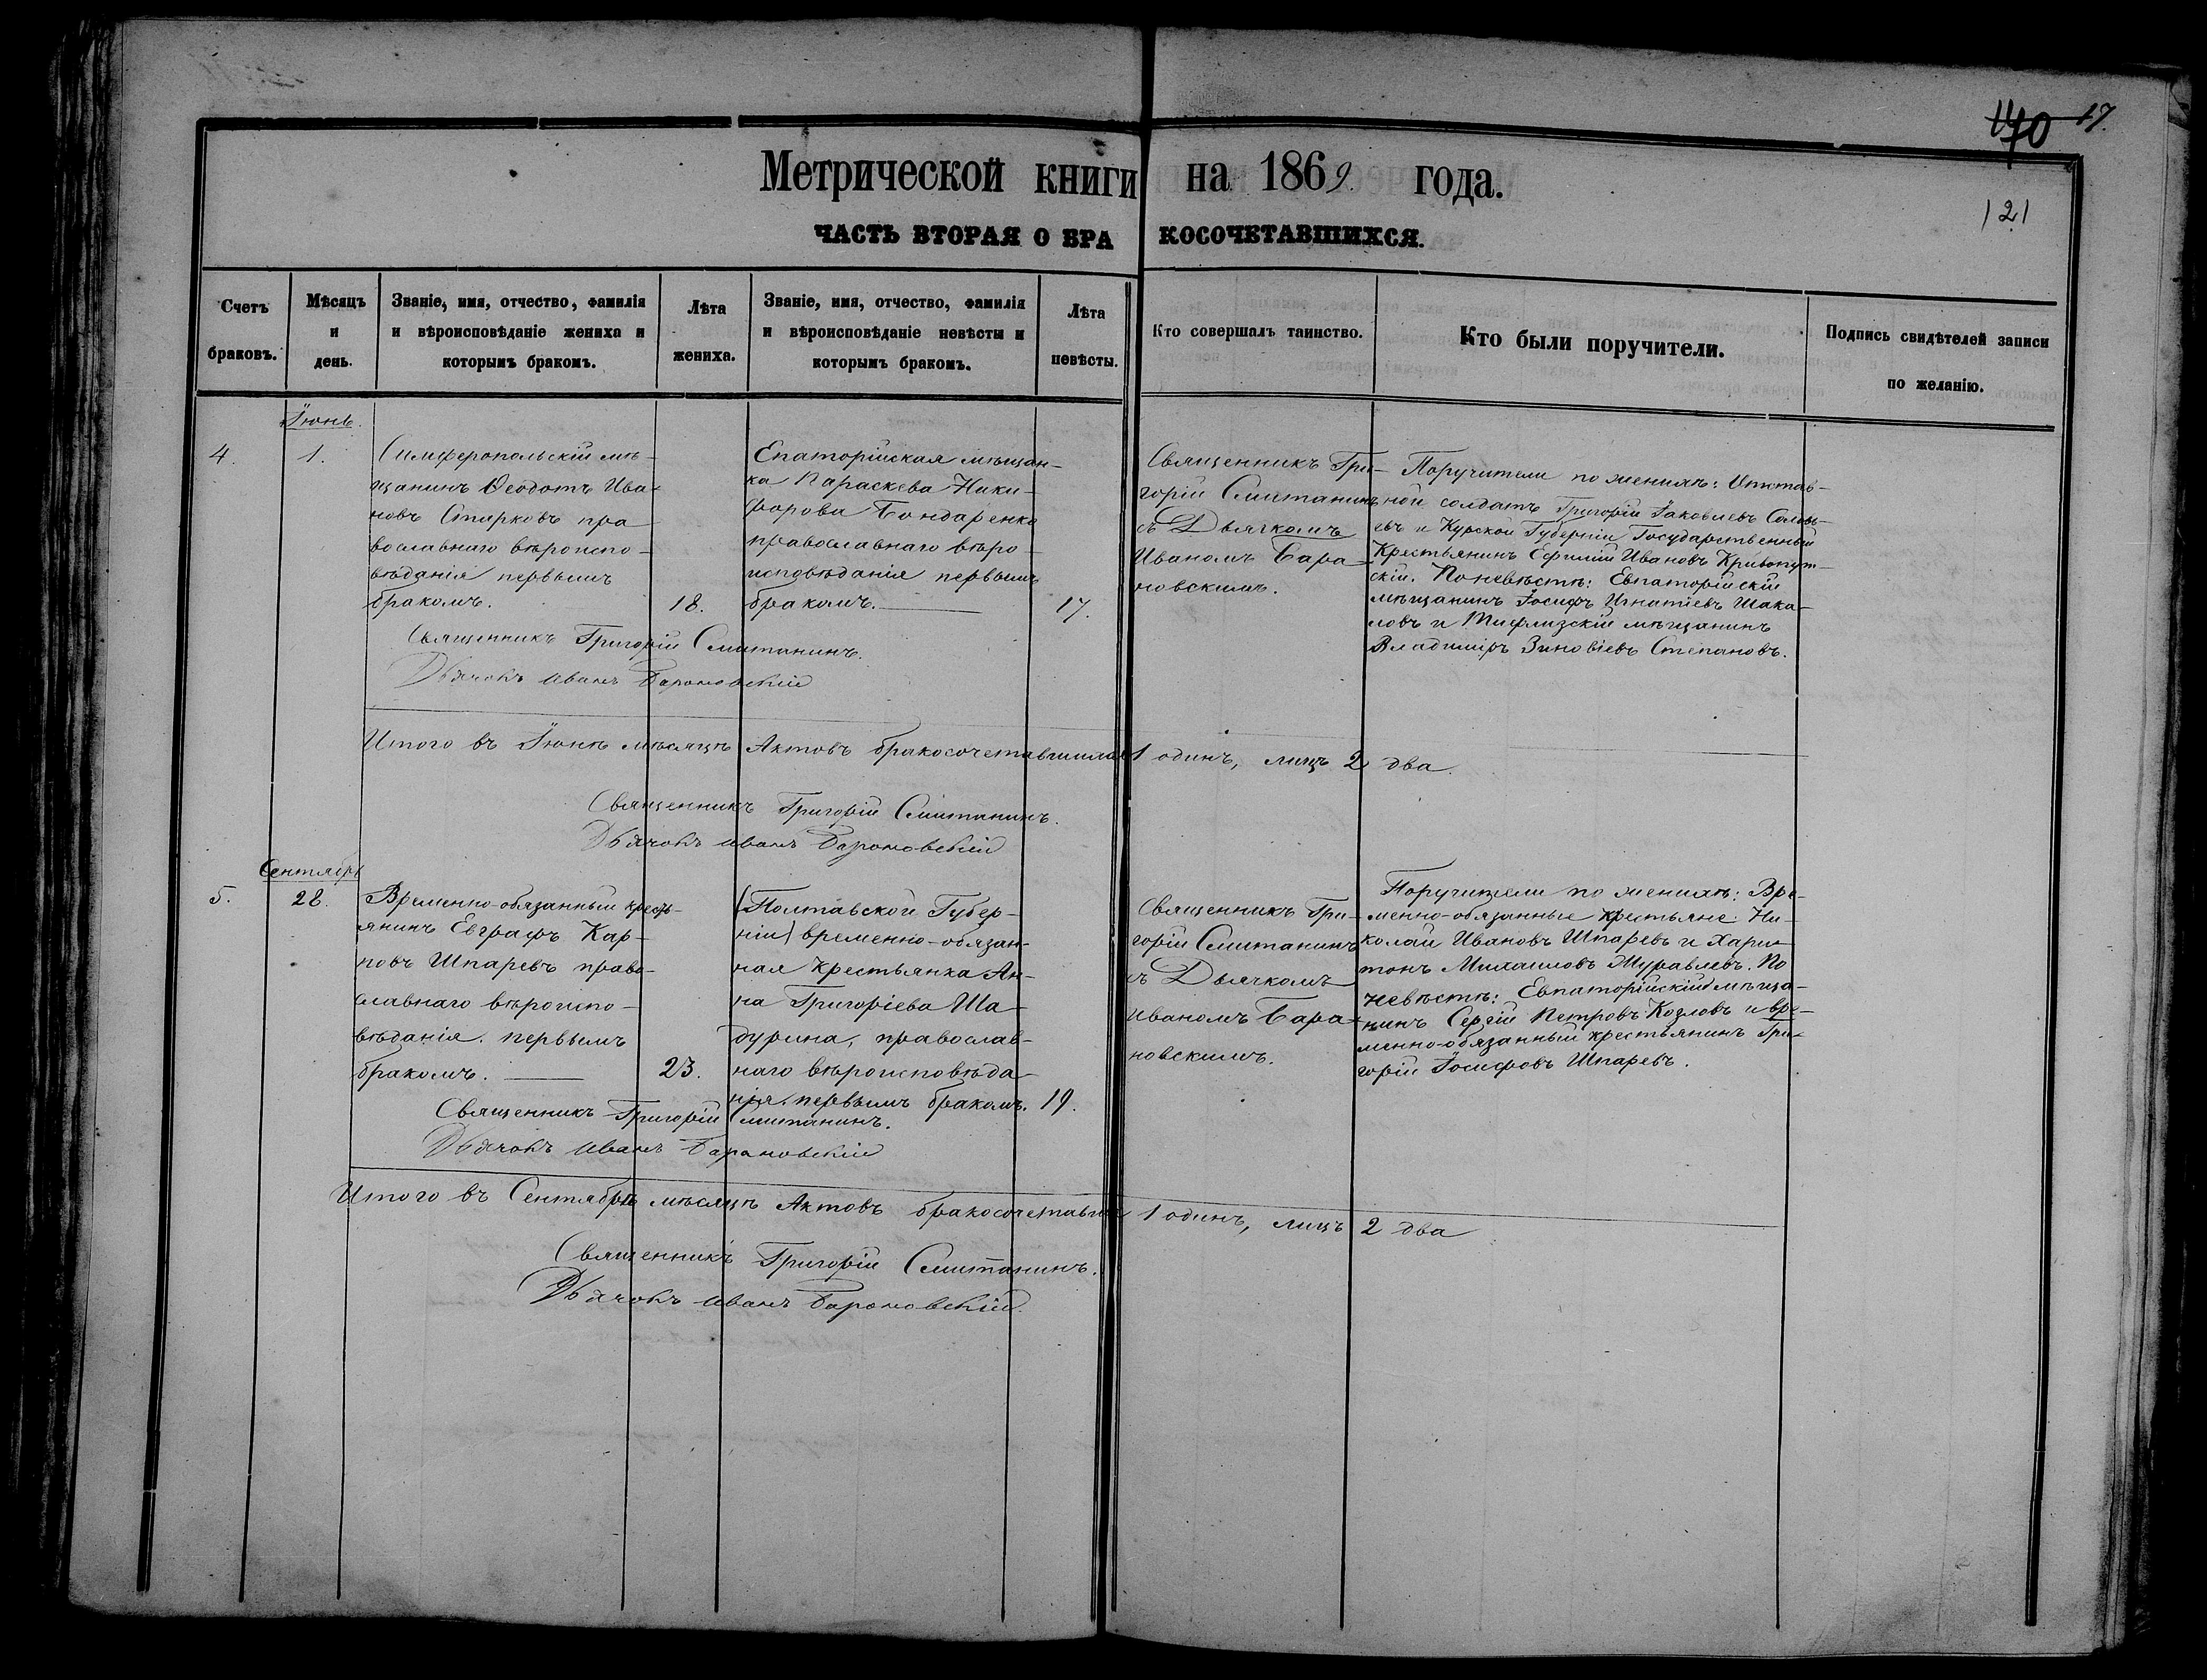 170 17.
Метрической книги на 1869. года.
121
ЧАСТЬ ВТОРАЯ О БРАКОСОЧЕТАВШИХСЯ.
Счетъ
браковъ.
Мѣсяцъ
и
день.
Званіе, имя, отчество, фамилія
и вѣроисповѣданіе жениха и
которымъ бракомъ.
Лѣта
жениха.
Званіе, имя, отчество, фамилія
и вѣроисповѣданіе невѣсты и
которымъ бракомъ.
Лѣта
невѣсты.
Кто совершалъ таинство.
Кто были поручители.
Подпись свидѣтелей записи
по желанію.
Іюнь.
4.
1.
Симферопольскій мѣ-
щанинъ Ѳеодотъ Ива-
новъ Старковъ пра
вославнаго вѣроиспо-
вѣданія первымъ
бракомъ.
18.
Епаторійская мѣщан-
ка Параскева Ники-
форова Бондаренко
православнаго вѣро-
исповѣданія первымъ
бракомъ.
17.
Священникъ Гри-
горій Смитанинъ
съ Дьячкомъ
Иваномъ Бара-
новскимъ.
Поручители по женихѣ: Отстав-
ной солдатъ Григорій Іаковлевъ Соловь-
евъ и Курской Губерніи Государственный
Крестьянинъ Ефимій Ивановъ Кривопут-
скій. По невѣстѣ: Евпаторійскій
мѣщанинъ Іосифъ Игнатіевъ Шака-
ловъ и Тифлизскій мѣщанинъ
Владиміръ Зиновіевъ Степановъ.
Священникъ Григорій Смитанинъ.
Дьячокъ Иванъ Барановскій
Итого въ Іюнѣ мѣсяцѣ Актовъ бракосочетавшихся 1 одинъ, лицъ 2 два.
Священникъ Григорій Смитанинъ.
Дьячокъ Иванъ Барановскій
Сентябрь
5.
28.
Временно-обязанный кресть-
янинъ Евграфъ Кар-
повъ Шпаревъ право-
славнаго вѣроиспо-
вѣданія. первымъ
бракомъ.
23.
(Полтавской Губер-
ніи) временно-обязан-
ная крестьянка Ан-
на Григоріева Ша-
дурина, православ-
наго вѣроисповѣда-
нія. первымъ бракомъ.
19.
Священникъ Гри-
горій Смитанинъ
съ Дьячкомъ
Иваномъ Бара-
новскимъ.
Поручители по женихѣ: Вре-
менно-обязанные крестьяне: Ни-
колай Ивановъ Шпаревъ и Хари-
тонъ Михаиловъ Журавлевъ. По
невѣстѣ: Евпаторійскій мѣща-
нинъ Сергій Петровъ Козловъ и вре-
менно-обязанный крестьянинъ Гри-
горій Іосифовъ Шпаревъ.
Священникъ Григорій Смитанинъ.
Дьячокъ Иванъ Барановскій
Итого въ Сентябрѣ мѣсяцѣ Актовъ 1 одинъ, лицъ 2 два
Священникъ Григорій Смитанинъ.
Дьячокъ Иванъ Барановскій.